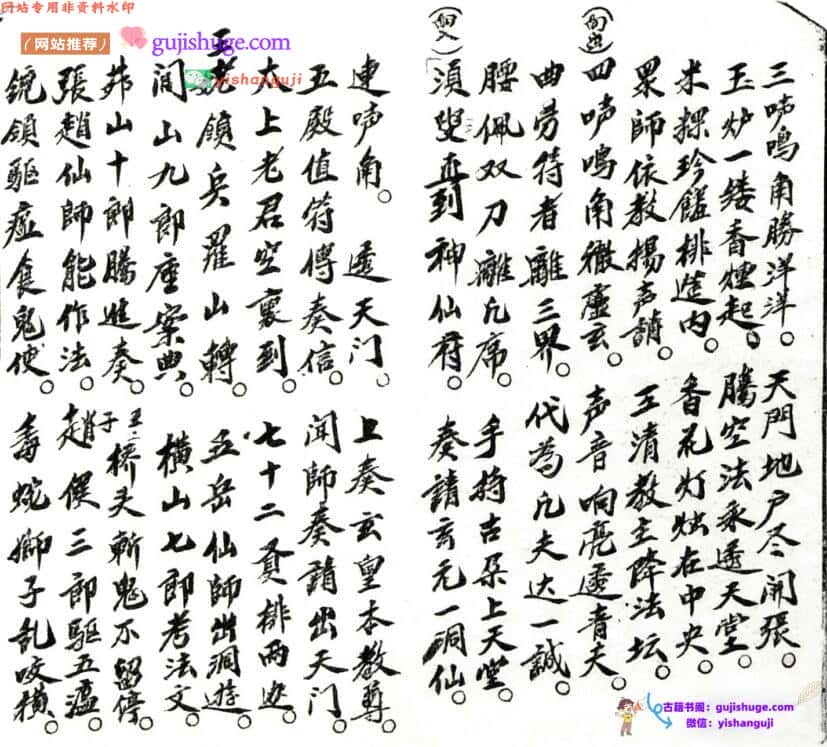 三吹鳴角勝洋洋。天門地户尽開張。
玉炉一缕香煙起。騰空法永透天堂。
米粿珍饈排筵内。香花灯烛在中央。
眾師依教揚声請。玉清教主降法坛。
四吹鳴角徹虚玄。声音响亮透青天。
曲労符者離三界。代為凡夫达一誠。
腰佩双刀離凡席。手持吉朵上天堂。
須叟直到神仙府。奏請玄元一洞仙。
連吹角。透天门。上奏玄皇本教尊。
五殿值符傳奏信。闻師奏請出天门。
太上老君空裏到。七十二員排两边。
五老領兵羅山轉。五岳仙師出洞遊。
閭山九郎座案典。横山七郎考法文。
茆山十郎騰進奏。桥头斬鬼不留停。
張趙仙師能作法。趙侯三郎驱五瘟。
鋭領驅瘟食鬼使。毒蛇獅子乱咬横。
网站专用非资料水印
(网站推荐) gujishuge.com
yishanguji
古籍书阁：gujishuge.com
微信：yishanguji